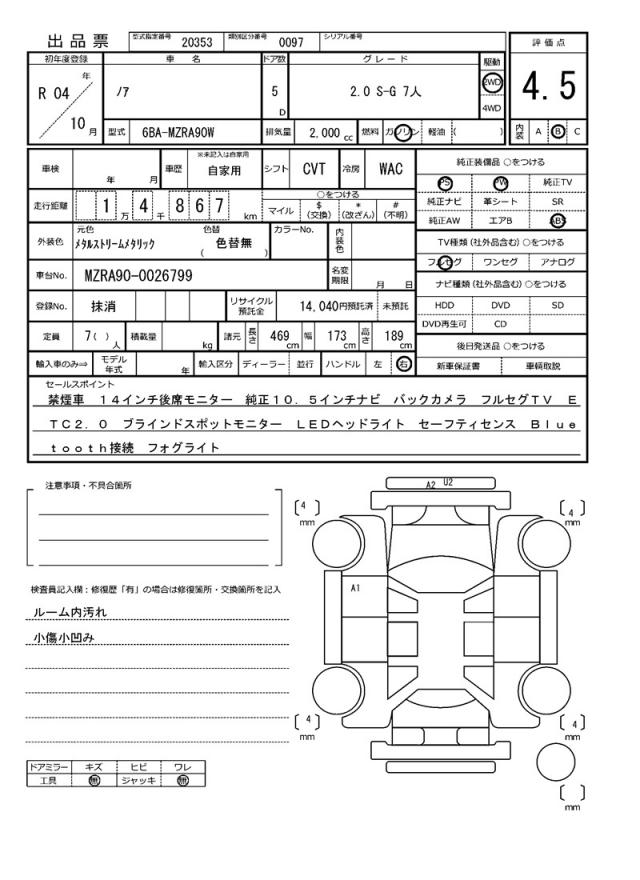 出品票 型式指定番号 20353 類別区分番号 0097 シリアル番号
評価点
4.5
内装 A B C
初年度登録 車名 ドア数 グレード 駆動
R 04 年 10 月 ノア 5 D 2.0 S-G 7人 2WD 4WD
型式 6BA-MZRA90W 排気量 2,000 cc 燃料 ガソリン 軽油 ( )
車検 年 月 車歴 ※未記入は自家用 自家用 シフト CVT 冷房 WAC
走行距離 1 万 4 千 8 6 7 km
○をつける
マイル $(交換) *(改ざん) #(不明)
外装色 元色 メタルストリームメタリック 色替 ( 色替無 ) カラーNo. 内装色
車台No. MZRA90-0026799 名変期限 月 日
登録No. 抹消 リサイクル預託金 14,040円預託済 未預託
定員 7( ) 人 積載量 kg 諸元 長さ 469 cm 幅 173 cm 高さ 189 cm
輸入車のみ⇒ モデル年式 年 輸入区分 ディーラー 並行 ハンドル 左 右
純正装備品 ○をつける
PS PW 純正TV
純正ナビ 革シート SR
純正AW エアB ABS
TV種類(社外品含む)○をつける
フルセグ ワンセグ アナログ
ナビ種類(社外品含む)○をつける
HDD DVD SD
DVD再生可 CD
後日発送品 ○をつける
新車保証書 車輌取説
セールスポイント
禁煙車 14インチ後席モニター 純正10.5インチナビ バックカメラ フルセグTV E
TC2.0 ブラインドスポットモニター LEDヘッドライト セーフティセンス Blue
tooth接続 フォグライト
注意事項・不具合箇所
検査員記入欄:修復歴「有」の場合は修復箇所・交換箇所を記入
ルーム内汚れ
小傷小凹み
ドアミラー キズ ヒビ ワレ
工具 無 ジャッキ 無
A2 U2
[4] mm
[4] mm
A1
[4] mm
[4] mm
[ ] mm